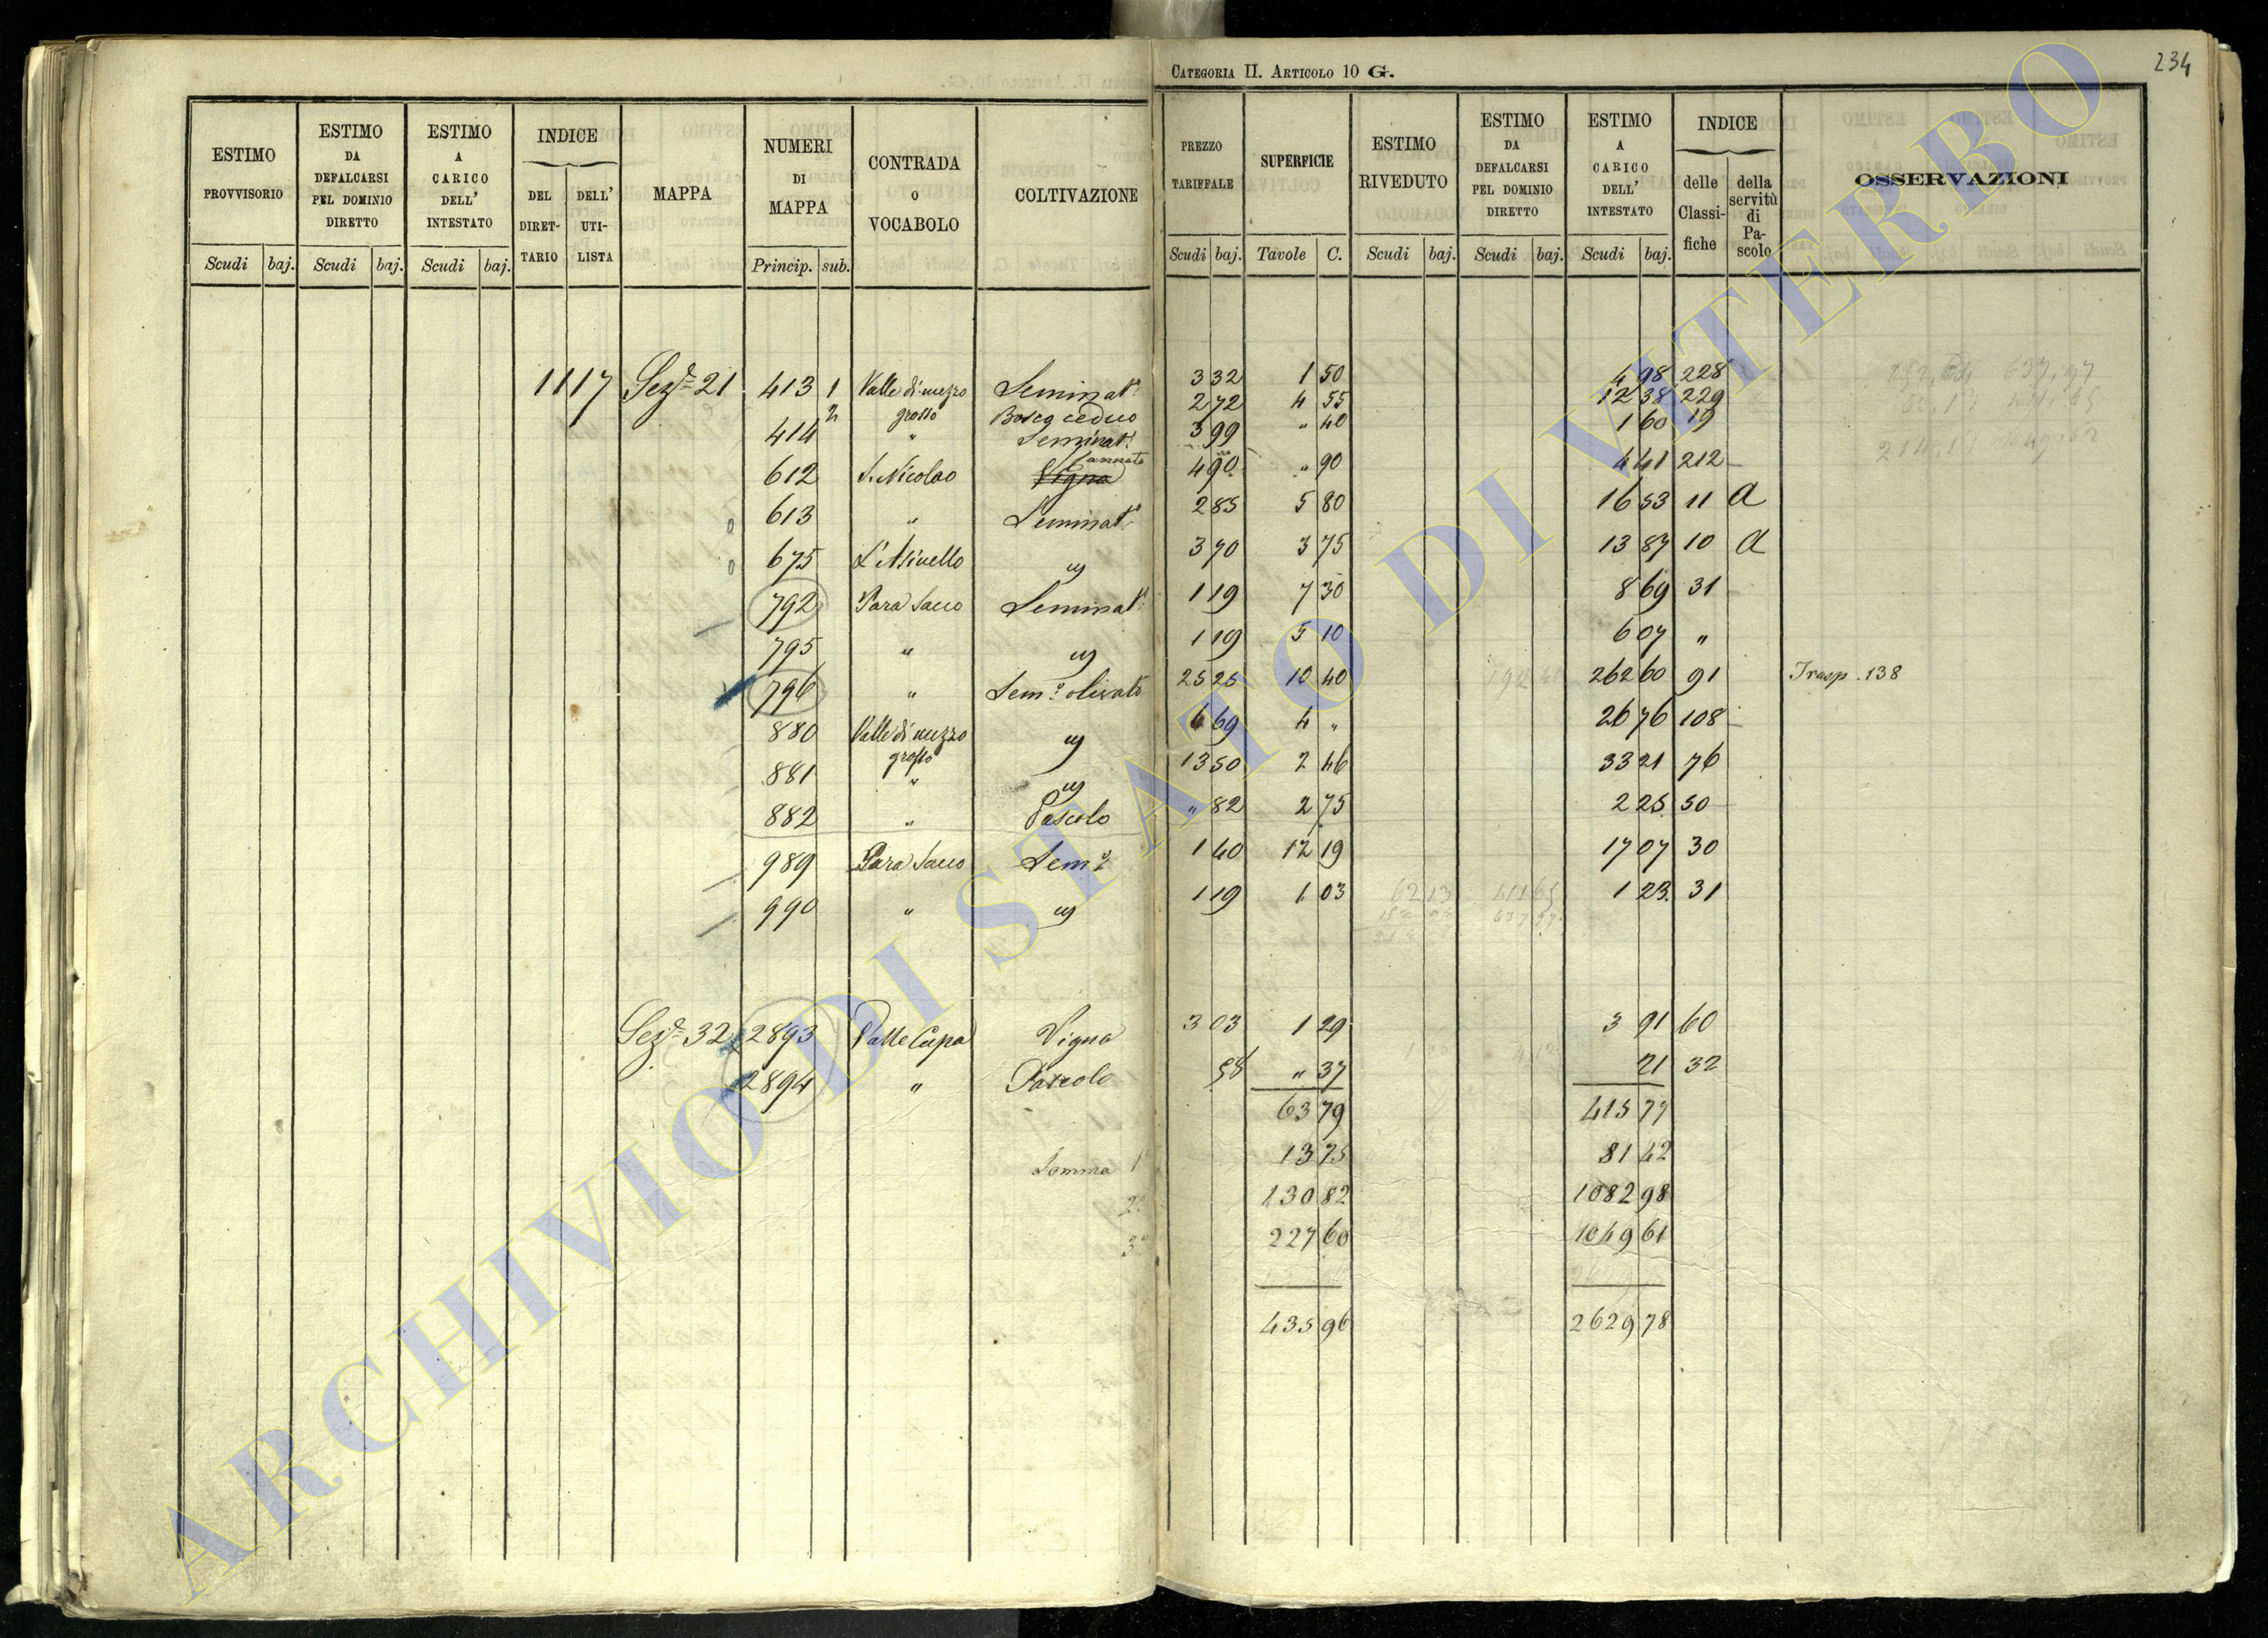 CATEGORIA II. ARTICOLO 10 G.
234
ESTIMO PROVVISORIO Scudi baj.
ESTIMO DA DEFALCARSI PEL DOMINIO DIRETTO Scudi baj.
ESTIMO A CARICO DELL' INTESTATO Scudi baj.
INDICE DEL DIRET-TARIO DELL' UTI-LISTA
MAPPA
NUMERI DI MAPPA Princip. sub.
CONTRADA O VOCABOLO
COLTIVAZIONE
PREZZO TARIFFALE Scudi baj.
SUPERFICIE Tavole C.
ESTIMO RIVEDUTO Scudi baj.
ESTIMO DA DEFALCARSI PEL DOMINIO DIRETTO Scudi baj.
ESTIMO A CARICO DELL' INTESTATO Scudi baj.
INDICE delle Classi-fiche della servitù di Pa-scolo
OSSERVAZIONI
1117 Sez.e 21 413 1 Valle di mezzo Seminat.o 3 32 1 50 4 98 228
2 grosso Bosco ceduo 2 72 4 55 12 38 229
414 " Seminat.o 3 99 " 40 1 60 19
612 S. Nicolao Vigna Canneto 4 90 " 90 4 41 212
613 " Seminat.o 2 85 5 80 16 53 11 a
675 L'Asinello " 3 70 3 75 13 87 10 a
792 Para Sacco Seminat.o 1 19 7 30 8 69 31
795 " " 1 19 5 10 6 07 "
796 " Sem.o olivato 25 25 10 40 262 60 91 Trasp. 138
880 Valle di mezzo grosso " 6 69 4 " 26 76 108
881 " " 13 50 2 46 33 21 76
882 " Pascolo " 82 2 75 2 25 50
989 Para Sacco Sem.o 1 40 12 19 17 07 30
990 " " 1 19 1 03 1 23 31
Sez.e 32 2893 Valle Cupa Vigna 3 03 1 29 3 91 60
2894 " Pascolo 58 " 37 21 32
63 79 415 77
Somma 1a 13 75 81 42
2a 130 82 1082 98
3a 227 60 1049 61
435 96 2629 78
ARCHIVIO DI STATO DI VITERBO